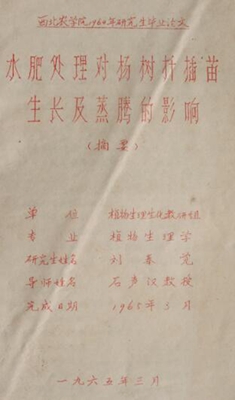 西北农学院1964年研究生毕业论文
水肥处理对杨树扦插苗
生长及蒸腾的影响
(摘要)
单位 植物生理生化教研组
专业 植物生理学
研究生姓名 刘春党
导师姓名 石声汉教授
完成日期 1965年3月
一九六五年三月